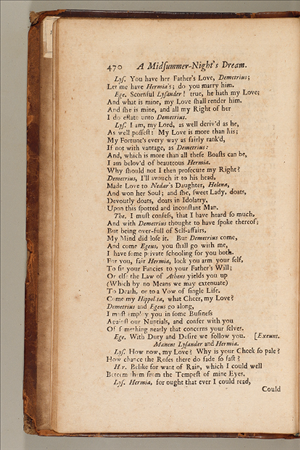 470 A Midsummer-Night's Dream.
Lys. You have her Father's Love, Demetrius;
Let me have Hermia's; do you marry him.
Ege. Scornful Lysander! true, he hath my Love;
And what is mine, my Love shall render him.
And she is mine, and all my Right of her
I do estate unto Demetrius.
Lys. I am, my Lord, as well deriv'd as he,
As well possest: My Love is more than his;
My Fortune's every way as fairly rank'd,
If not with vantage, as Demetrius:
And, which is more than all these Boasts can be,
I am belov'd of beauteous Hermia.
Why should not I then prosecute my Right?
Demetrius, I'll avouch it to his head,
Made Love to Nedar's Daughter, Helena,
And won her Soul; and she, sweet Lady, doats,
Devoutly doats, doats in Idolatry,
Upon this spotted and inconstant Man.
The. I must confess, that I have heard so much,
And with Demetrius thought to have spoke thereof;
But being over-full of Self-affairs,
My Mind did lose it. But Demetrius come,
And come Egeus, you shall go with me,
I have some private schooling for you both.
For you, fair Hermia, look you arm your self,
To fit your Fancies to your Father's Will;
Or else the Law of Athens yields you up
(Which by no Means we may extenuate)
To Death, or to a Vow of single Life.
Come my Hippolita, what Cheer, my Love?
Demetrius and Egeus go along,
I must employ you in some Business
Against our Nuptials, and confer with you
Of something nearly that concerns your selves.
Ege. With Duty and Desire we follow you. [Exeunt.
Manent Lysander and Hermia.
Lys. How now, my Love? Why is your Cheek so pale?
How chance the Roses there do fade so fast?
Her. Belike for want of Rain, which I could well
Beteem them from the Tempest of mine Eyes.
Lys. Hermia, for ought that ever I could read,
Could